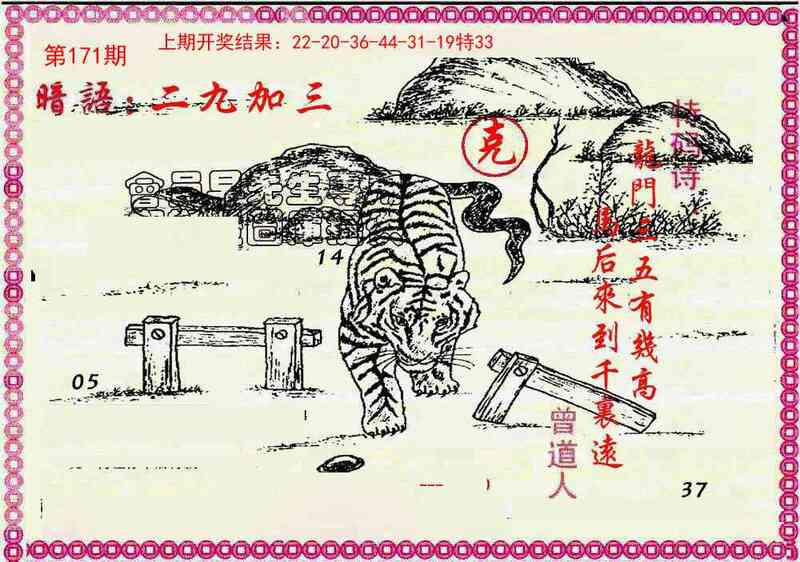 第171期
上期开奖结果：22-20-36-44-31-19特33
暗語：二九加三
克
特码诗：
龍門三五有幾高
馬后來到千裏遠
14
05
曾道人
37